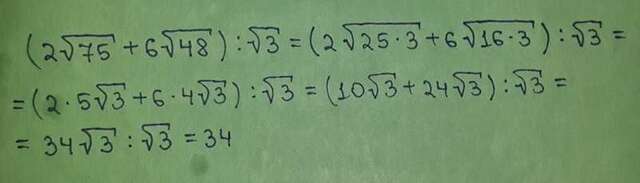 (2√75 + 6√48) : √3 = (2√25·3 + 6√16·3) : √3 =
= (2·5√3 + 6·4√3) : √3 = (10√3 + 24√3) : √3 =
= 34√3 : √3 = 34